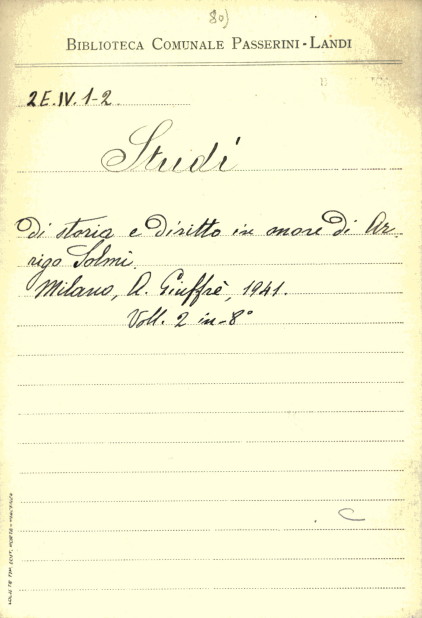 80)
BIBLIOTECA COMUNALE PASSERINI-LANDI
2E.IV.1-2.
Studi
di storia e diritto in onore di Ar-
rigo Solmi.
Milano, A. Giuffrè, 1941.
Voll. 2 in-8°
C